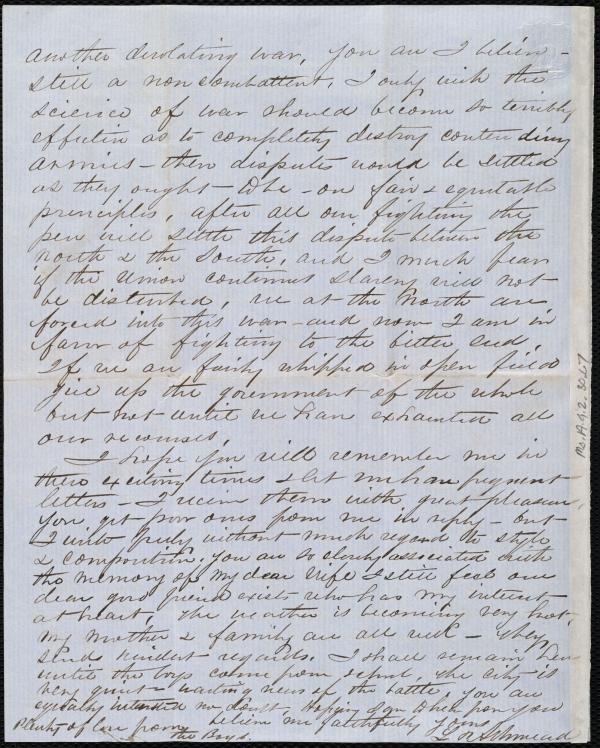 another desolating war, you are I believe -
still a non combattent, I only wish the
science of war should become so terribly
effective as to completely destroy contending
armies - then disputes would be settled
as they ought - to be - on fair & equitable
principles, after all our fighting the
pen will settle this dispute between the
north & the South, and I much fear
if the Union continues slavery will not
be disturbed, we at the North are
forced into this war - and now I am in
favor of fighting to the bitter end,
If we are fairly whipped in open field
give up the government of the whole
but not until we have exhausted all
our recourses,
I hope you will remember me in
these exciting times & let me have frequent
letters - I receive them with great pleasure,
you get poor ones from me in reply - but
I write freely without much regard to style
& composition. You are so closely associated with
the memory of my dear wife I still feel one
dear good friend exists who has my interest
at heart, The weather is becoming very hot,
my mother & family are all well - they
send kindest regards. I shall remain here
until the boys come from school, the city is
very quiet - waiting news of the battle, you are
equally interested no doubt, Hoping again to hear from you
believe me faithfully yours
Plenty of love from
the Boys.
Ms. A.9.2. 30.67